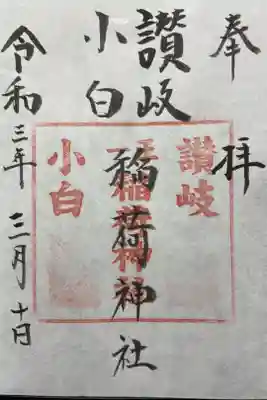 奉拝
讃岐
小白
稲荷神社
令和三年三月十日
讃岐
小白